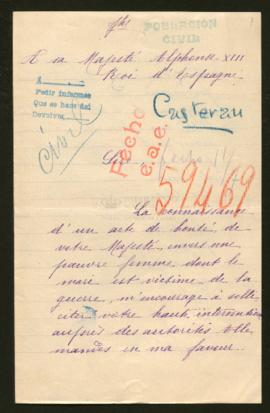 POBLACION
CIVIL
A sa Majesté Alphonse XIII
Roi d'Espagne.
Pedir informes
Que se hace así
Devolver
Casterau
civil
Sire,
Fecho
e.a.e.
59469
La connaissance
d'un acte de bonté, de
votre Majesté, envers une
pauvre femme dont le
mari est victime de la
guerre, m'encourage à solli
citer votre haute intervention
auprès des autorités Alle
mandes en ma faveur